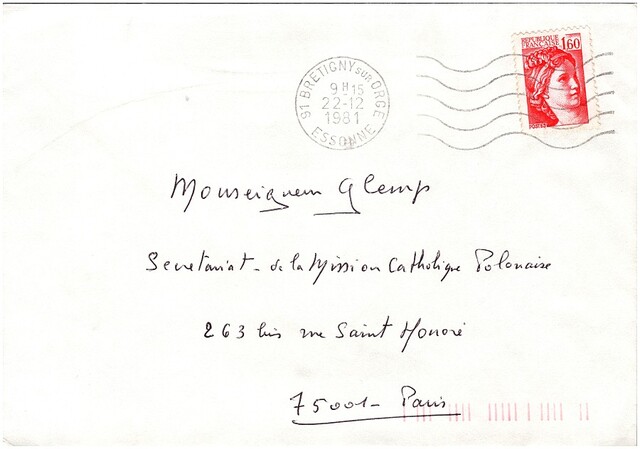 91 BRETIGNY SUR ORGE
9H15
22-12
1981
ESSONNE
REPUBLIQUE
FRANÇAISE 1,60
POSTES
Monseigneur Glemp
Secretariat - de la Mission Catholique Polonaise
263 bis rue Saint Honoré
75001 - Paris